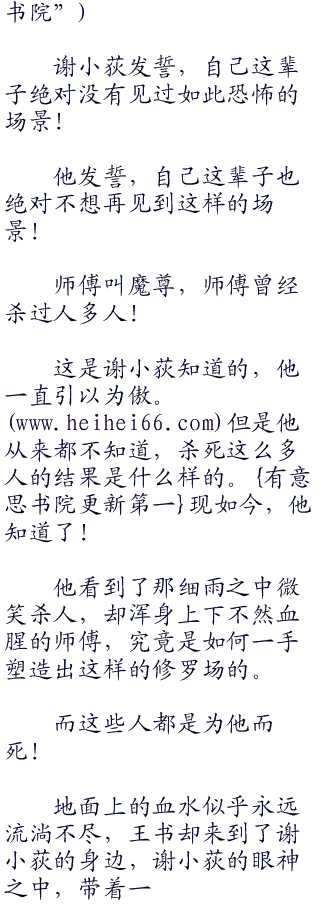 书院”)
谢小荻发誓，自己这辈
子绝对没有见过如此恐怖的
场景！
他发誓，自己这辈子也
绝对不想再见到这样的场
景！
师傅叫魔尊，师傅曾经
杀过人多人！
这是谢小荻知道的，他
一直引以为傲。
(www.heihei66.com)但是他
从来都不知道，杀死这么多
人的结果是什么样的。{有意
思书院更新第一}现如今，他
知道了！
他看到了那细雨之中微
笑杀人，却浑身上下不然血
腥的师傅，究竟是如何一手
塑造出这样的修罗场的。
而这些人都是为他而
死！
地面上的血水似乎永远
流淌不尽，王书却来到了谢
小荻的身边，谢小荻的眼神
之中，带着一